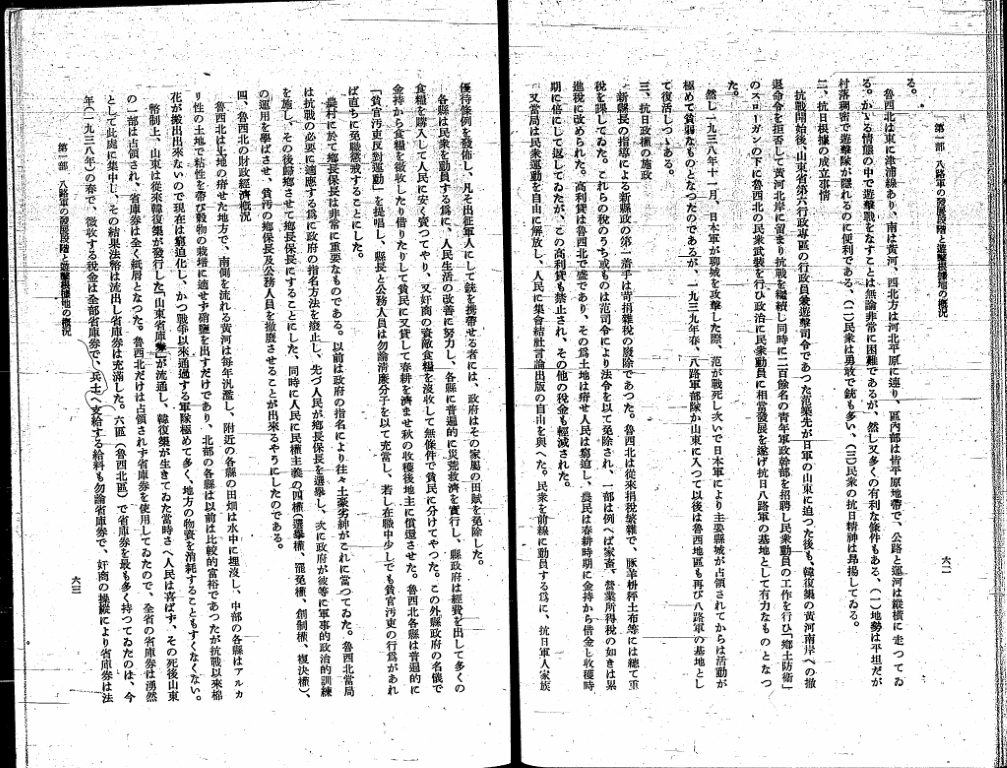 第一部　八路軍の發展段階と遊擊根據地の概況
六二
る。
魯西北は東に津浦線あり、南は黃河、西北方は河北平原に連り、區內部は皆平原地帶で、公路と運河は縱橫に走つてゐ
る。かゝる情態の中で遊擊戰をなすことは無論非常に困難であるが、然し又多くの有利な條件もある、(一)地勢は平坦だが
村落稠密で遊擊隊が隱れるのに便利である、(二)民衆は勇敢で銃も多い、(三)民衆の抗日精神は昂揚してゐる。
二、抗日根據の成立事情
抗戰開始後、山東省第六行政專區の行政專員兼遊擊司令であつた范築先が日軍の山東に迫つた後も、韓復榘の黃河南岸への撤
退命令を拒否して黃河北岸に留まり抗戰を繼續し同時に二百餘名の靑年軍政幹部を招聘し民衆動員の工作を行ひ「鄕土防衞」
のスローガンの下に魯西北の民衆武裝を行ひ政治に民衆動員に相當發展を遂げ抗日八路軍の基地として有力なものとなつ
た。
然し一九三八年十一月、日本軍が聊城を攻擊した際、范が戰死し次いで日本軍により主要縣城が占領されてからは活動が
極めて貧弱なものとなつたのであるが、一九三九年春、八路軍部隊が山東に入つて以後は魯西地區も再び八路軍の基地とし
て復活しつゝある。
三、抗日政權の施政
新縣長の指導による新縣政の第一着手は苛捐雜稅の廢除であつた。魯西北は從來捐稅繁雜で、豚羊枡秤土布等には總て重
稅を課してゐた。これらの稅のうち或ものは范司令により法令を以て免除され、一部は例へば家畜、營業所得稅の如きは累
進稅に改められた。高利貸は魯西北で盛であり、その爲土地は瘠せ人民は窮迫し、農民は春耕時期に金持から借金し收穫時
期に倍にして返してゐたが、この高利貸も禁止され、その他の稅金も輕減された。
又當局は民衆運動を自由に解放し、人民に集會結社言論出版の自由を與へた。民衆を前線に動員する爲に、抗日軍人家族
優待條例を發佈し、凡そ出征軍人にして銃を携帶せる者には、政府はその家屬の田賦を免除した。
各縣は民衆を動員する爲に、人民生活の改善に努力し、各縣に普遍的に災荒救濟を實行し、縣政府は經費を出して多くの
食糧を購入して人民に安く賣つてやり、又奸商の資敵食糧を沒收して無條件で貧民に分けてやつた。この外縣政府の名儀で
金持から食糧を徵收したり借りたりして貧民に又貸して春耕を濟ませ秋の收穫後地主に償還させた。魯西北各縣は普遍的に
「貪官汚吏反對運動」を提唱し、縣長と公務人員は勿論淸廉分子を以て充當し、若し在職中少しでも貪官汚吏の行爲があれ
ば直ちに免職懲戒することにした。
農村に於て鄕長保長は非常に重要なものである。以前は政府の指名により往々土豪劣紳がこれに當つてゐた。魯西北當局
は抗戰の必要に適應する爲に政府の指名方法を廢止し、先づ人民が鄕長保長を選擧し、次に政府が彼等に軍事的政治的訓練
を施し、その後歸鄕させて鄕長保長にすることにした、同時に人民に民權主義の四權(選擧權、罷免權、創制權、複決權)、
の運用を學ばさせ、貪汚の鄕保長及公務人員を撤廢させることが出來るやうにしたのである。
四、魯西北の財政經濟槪況
魯西北は土地の瘠せた地方で、南側を流れる黃河は每年氾濫し、附近の各縣の田畑は水中に埋沒し、中部の各縣はアルカ
リ性の土地で粘性を帶び穀物の栽培に適せず硝鹽を出すだけであり、北部の各縣は以前は比較的富裕であつたが抗戰以來棉
花が搬出出來ないので現在は窮迫化し、かつ戰爭以來通過する軍隊極めて多く、地方の物資を消耗することもすくなくない。
幣制上、山東は從來韓復榘が發行した「山東省庫券」が流通し、韓復榘が生きてゐた當時さへ人民は喜ばず、その死後山東
の一部は占領され、省庫券は全く紙屑となつた。魯西北だけは占領されず省庫券を使用してゐたので、全省の省庫券は湧然
として此處に集中し、その結果法幣は流出し省庫券は充滿した。六區(魯西北區)で省庫券を最も多く持つてゐたのは、今
年(一九三八年)の春で、徵收する稅金は全部省庫券で、兵士へ支給する給料も勿論省庫券で、奸商の操縱により省庫券は法
第一部　八路軍の發展段階と遊擊根據地の概況
六三